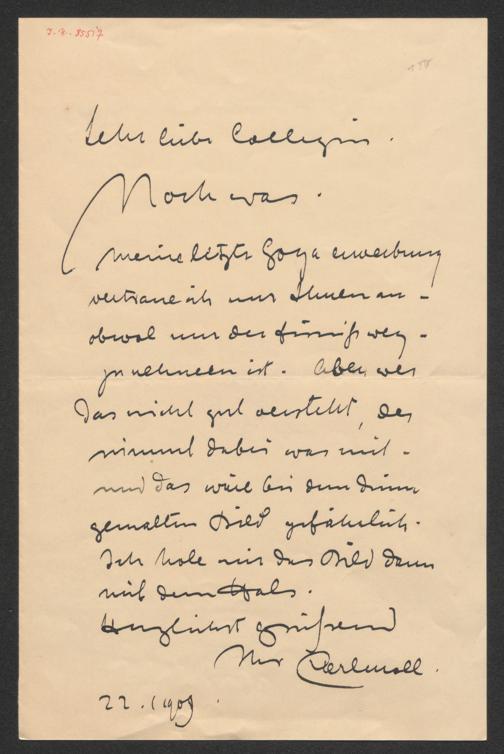 I.N. 95517
Sehr liebe Collegin.
Noch was.
Meine letzte Goya erwerbung
vertraue ich nur Ihnen an -
obwol nur der Firniß weg -
zu nehmen ist. Aber wer
das nicht gut versteht, der
nimmt dabei was mit -
und das wäre bei dem dünn
gemalten Bild gefährlich.
Ich hole mir das Bild dann
mit dem Hals.
Herzlichst grüßend
Ihr Carl Moll.
22. 1909.